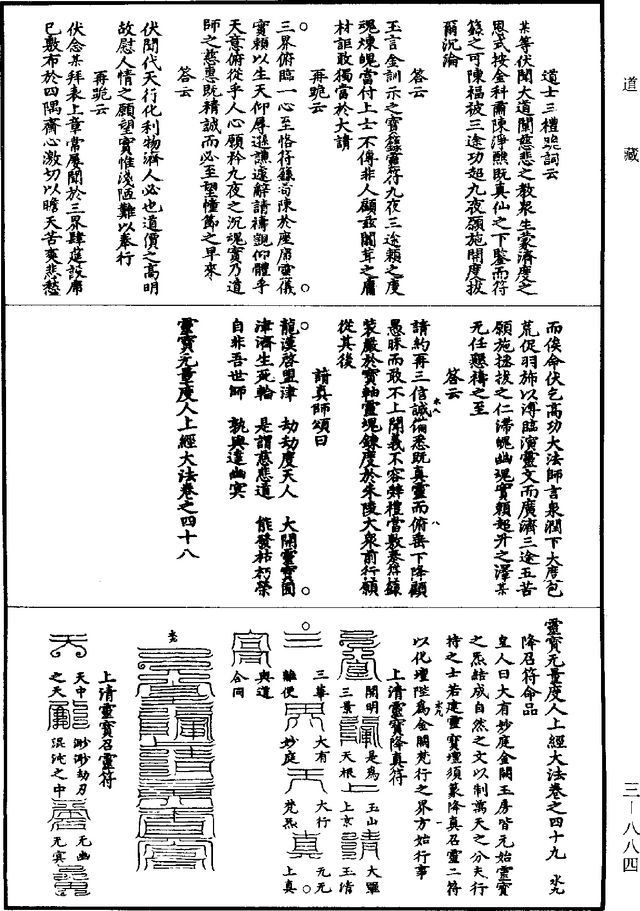 道藏
三—八八四
道士三禮跪詞云
某等伏聞大道闡慈悲之教眾生蒙濟度之
恩式按金科肅陳淨醮既真仙之下鑒而符
籙之可陳福被三途功超九夜願施開度拔
爾沉淪
答云
玉言金訓示之寶籙靈符九夜三途賴之度
魂煉魄當付上士不傳非人顧茲闒茸之庸
材詎敢獨當於大請
再跪云
三界俯臨一心至恪符籙尚陳於座席靈儀
實賴以生天仰辱遜謙遽辭請禱覬仰體乎
天意俯從乎人心願矜九夜之沉魂實乃道
師之慈惠既精誠而必至望幢節之早來
答云
伏聞代天行化利物濟人必也道價之高明
故慰人情之願望實惟淺陋難以奉行
再跪云
伏念某拜表上章常屢聞於三界肆筵設席
已敷布於四隅齋心激切以瞻天苦爽悲愁
而俟命伏乞高功大法師言泉潤下大度包
荒促羽旆以溥臨演靈文而廣濟三途五苦
願施拯拔之仁滯魄幽魂實賴超升之澤某
无任懇禱之至
答云
請約再三信誠備悉既真靈而俯垂下降顧
愚昧而敢不上聞義不容辭禮當敷奏符籙
裝嚴於寶軸靈魂鍊度於朱陵大眾前行願
從其後
請真師頌曰
龍漢啓盟津 劫劫度天人 大開靈寶圖
津濟生死輪 是謂慈悲道 能發枯朽榮
自非吾世師 孰與達幽冥
靈寶无量度人上經大法卷之四十八
靈寶无量度人上經大法卷之四十九 水九
降召符命品
皇人曰大有妙庭金闕玉房皆元始靈寶
之炁結成自然之文以制萬天之分天行
持之士若建靈寶壇須篆降真召靈二符
以化壇陛爲金闕梵行之界方始行事
上清靈寶降真符
開明 三景 是爲 天根 玉山 上京 大羅 玉清
三華 離便 大有 妙庭 大行 梵炁 元元 上真
與道 合同
上清靈寶召靈符
天中 之天 渺渺劫刃 混沌之中 元幽 元冥